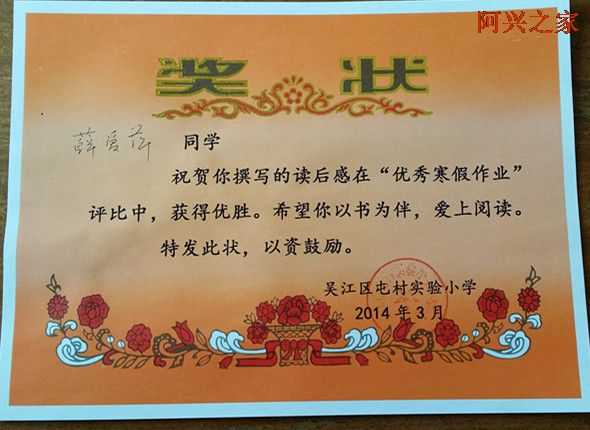 阿兴之家
奖状
薛 同学
祝贺你撰写的读后感在“优秀寒假作业”
评比中，获得优胜。希望你以书为伴，爱上阅读。
特发此状，以资鼓励。
吴江区屯村实验小学
2014年3月